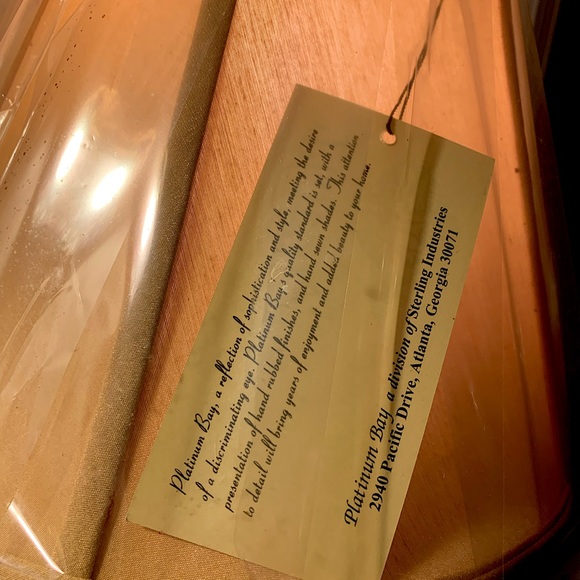 Platinum Bay, a reflection of sophistication and style, meeting the desire
of a discriminating eye. Platinum Bay's quality standard is set, with a
presentation of hand rubbed finishes, and hand sewn shades. This attention
to detail will bring years of enjoyment and added beauty to your home.
Platinum Bay a division of Sterling Industries
2940 Pacific Drive, Atlanta, Georgia 30071